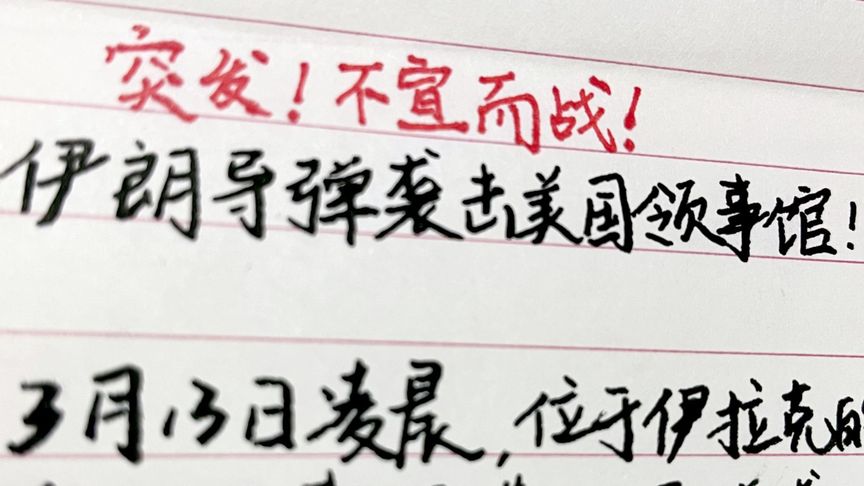 突发！不宣而战！
伊朗导弹袭击美国领事馆！
3月13日凌晨，位于伊拉克的